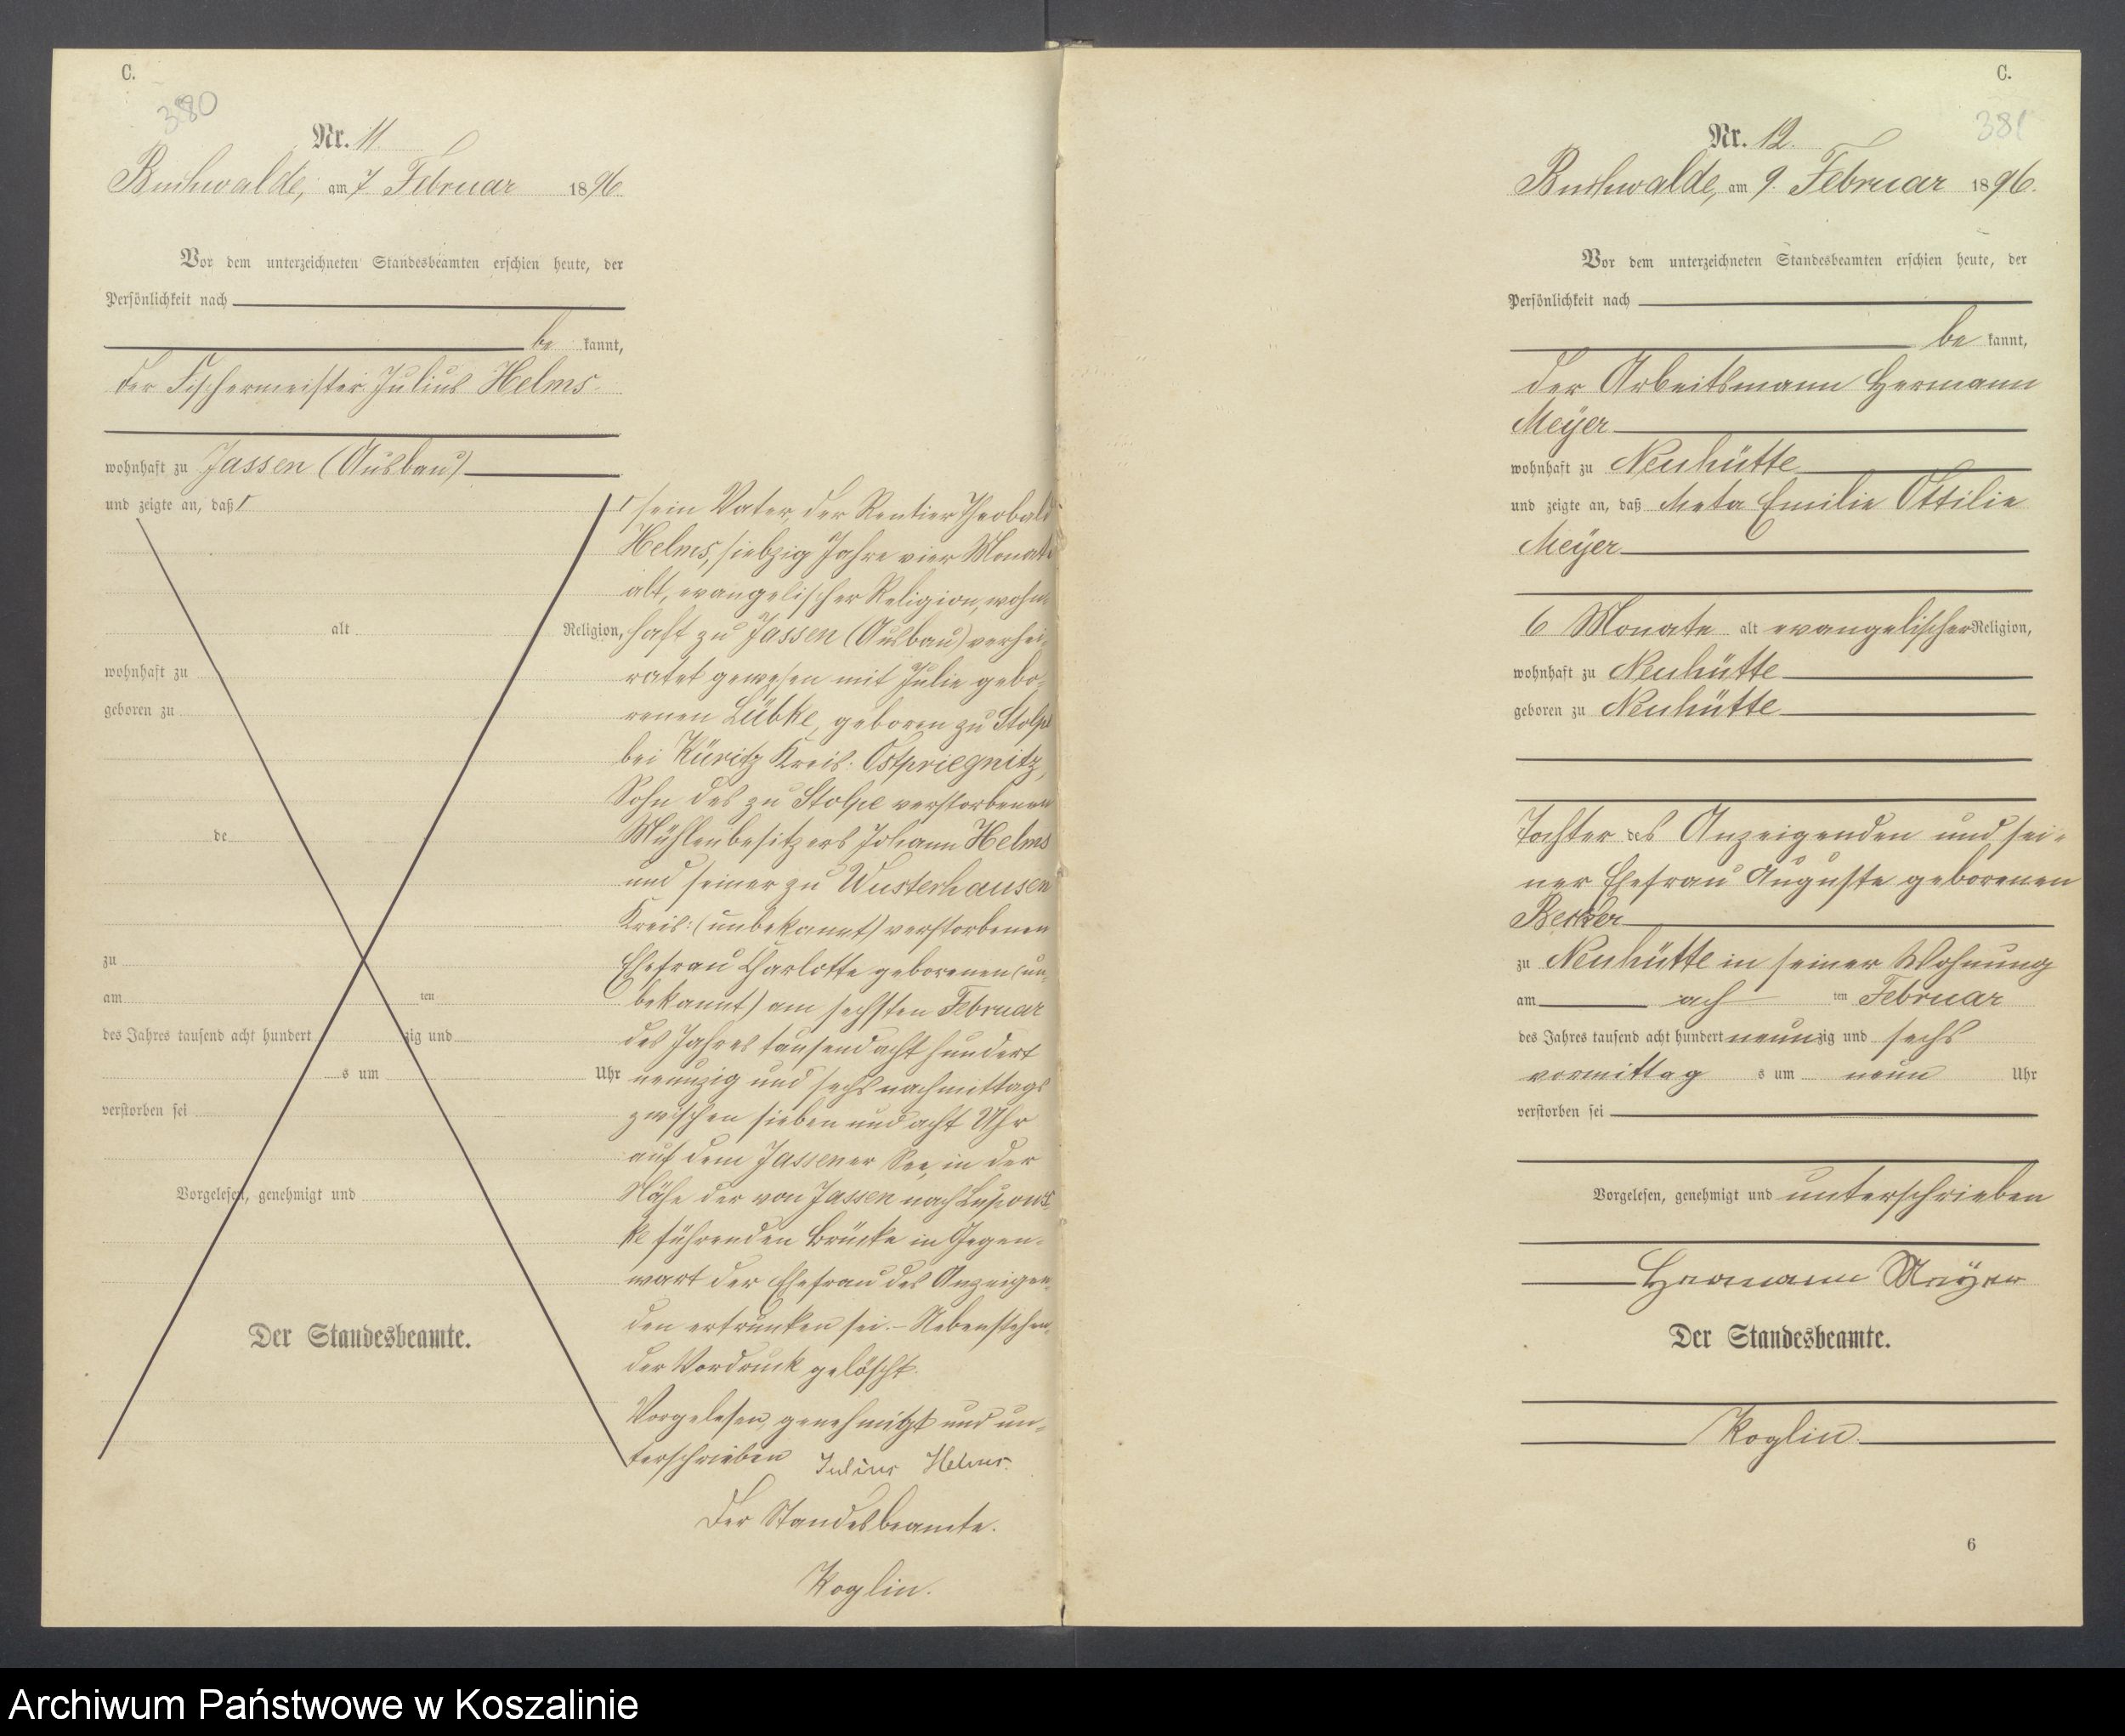 C.
380
Nr. 11.
Buchwalde, am 7. Februar 1896.
Vor dem unterzeichneten Standesbeamten erschien heute, der
Persönlichkeit nach
be kannt,
der Fischermeister Julius Helms
wohnhaft zu Jassen (Ausbau)
und zeigte an, daß
alt Religion,
wohnhaft zu
geboren zu
de
zu
am ten
des Jahres tausend acht hundert zig und
s um Uhr
verstorben sei
Vorgelesen, genehmigt und
Der Standesbeamte.
sein Vater, der Rentier Theobald
Helms, siebzig Jahre vier Monate
alt, evangelischer Religion, wohn-
haft zu Jassen (Ausbau) verhei-
ratet gewesen mit Julie gebo-
renen Lübke, geboren zu Stolpe
bei Küritz Kreis: Ostpriegnitz,
Sohn des zu Stolpe verstorbenen
Mühlenbesitzers Johann Helms
und seiner zu Wusterhausen
Kreis: (unbekannt) verstorbenen
Ehefrau Charlotte geborenen (un-
bekannt) am sechsten Februar
des Jahres tausend acht hundert
neunzig und sechs nachmittags
zwischen sieben und acht Uhr
auf dem Jassener See, in der
Nähe der von Jassen nach Lupows-
ke führenden Brücke in Gegen-
wart der Ehefrau des Anzeigen-
den ertrunken sei. – Nebenstehen-
der Vordruck gelöscht.
Vorgelesen, genehmigt und un-
terschrieben Julius Helms.
Der Standesbeamte.
Koglin.
C.
381
Nr. 12.
Buchwalde, am 9. Februar 1896.
Vor dem unterzeichneten Standesbeamten erschien heute, der
Persönlichkeit nach
be kannt,
der Arbeitsmann Hermann
Meÿer
wohnhaft zu Neuhütte
und zeigte an, daß Meta Emilie Ottilie
Meÿer
6 Monate alt evangelischer Religion,
wohnhaft zu Neuhütte
geboren zu Neuhütte
Tochter des Anzeigenden und sei-
ner Ehefrau Auguste geborenen
Becker
zu Neuhütte in seiner Wohnung
am ach ten Februar
des Jahres tausend acht hundert neunzig und sechs
vormittag s um neun Uhr
verstorben sei
Vorgelesen, genehmigt und unterschrieben
Hermann Meÿer
Der Standesbeamte.
Koglin.
6
Archiwum Państwowe w Koszalinie